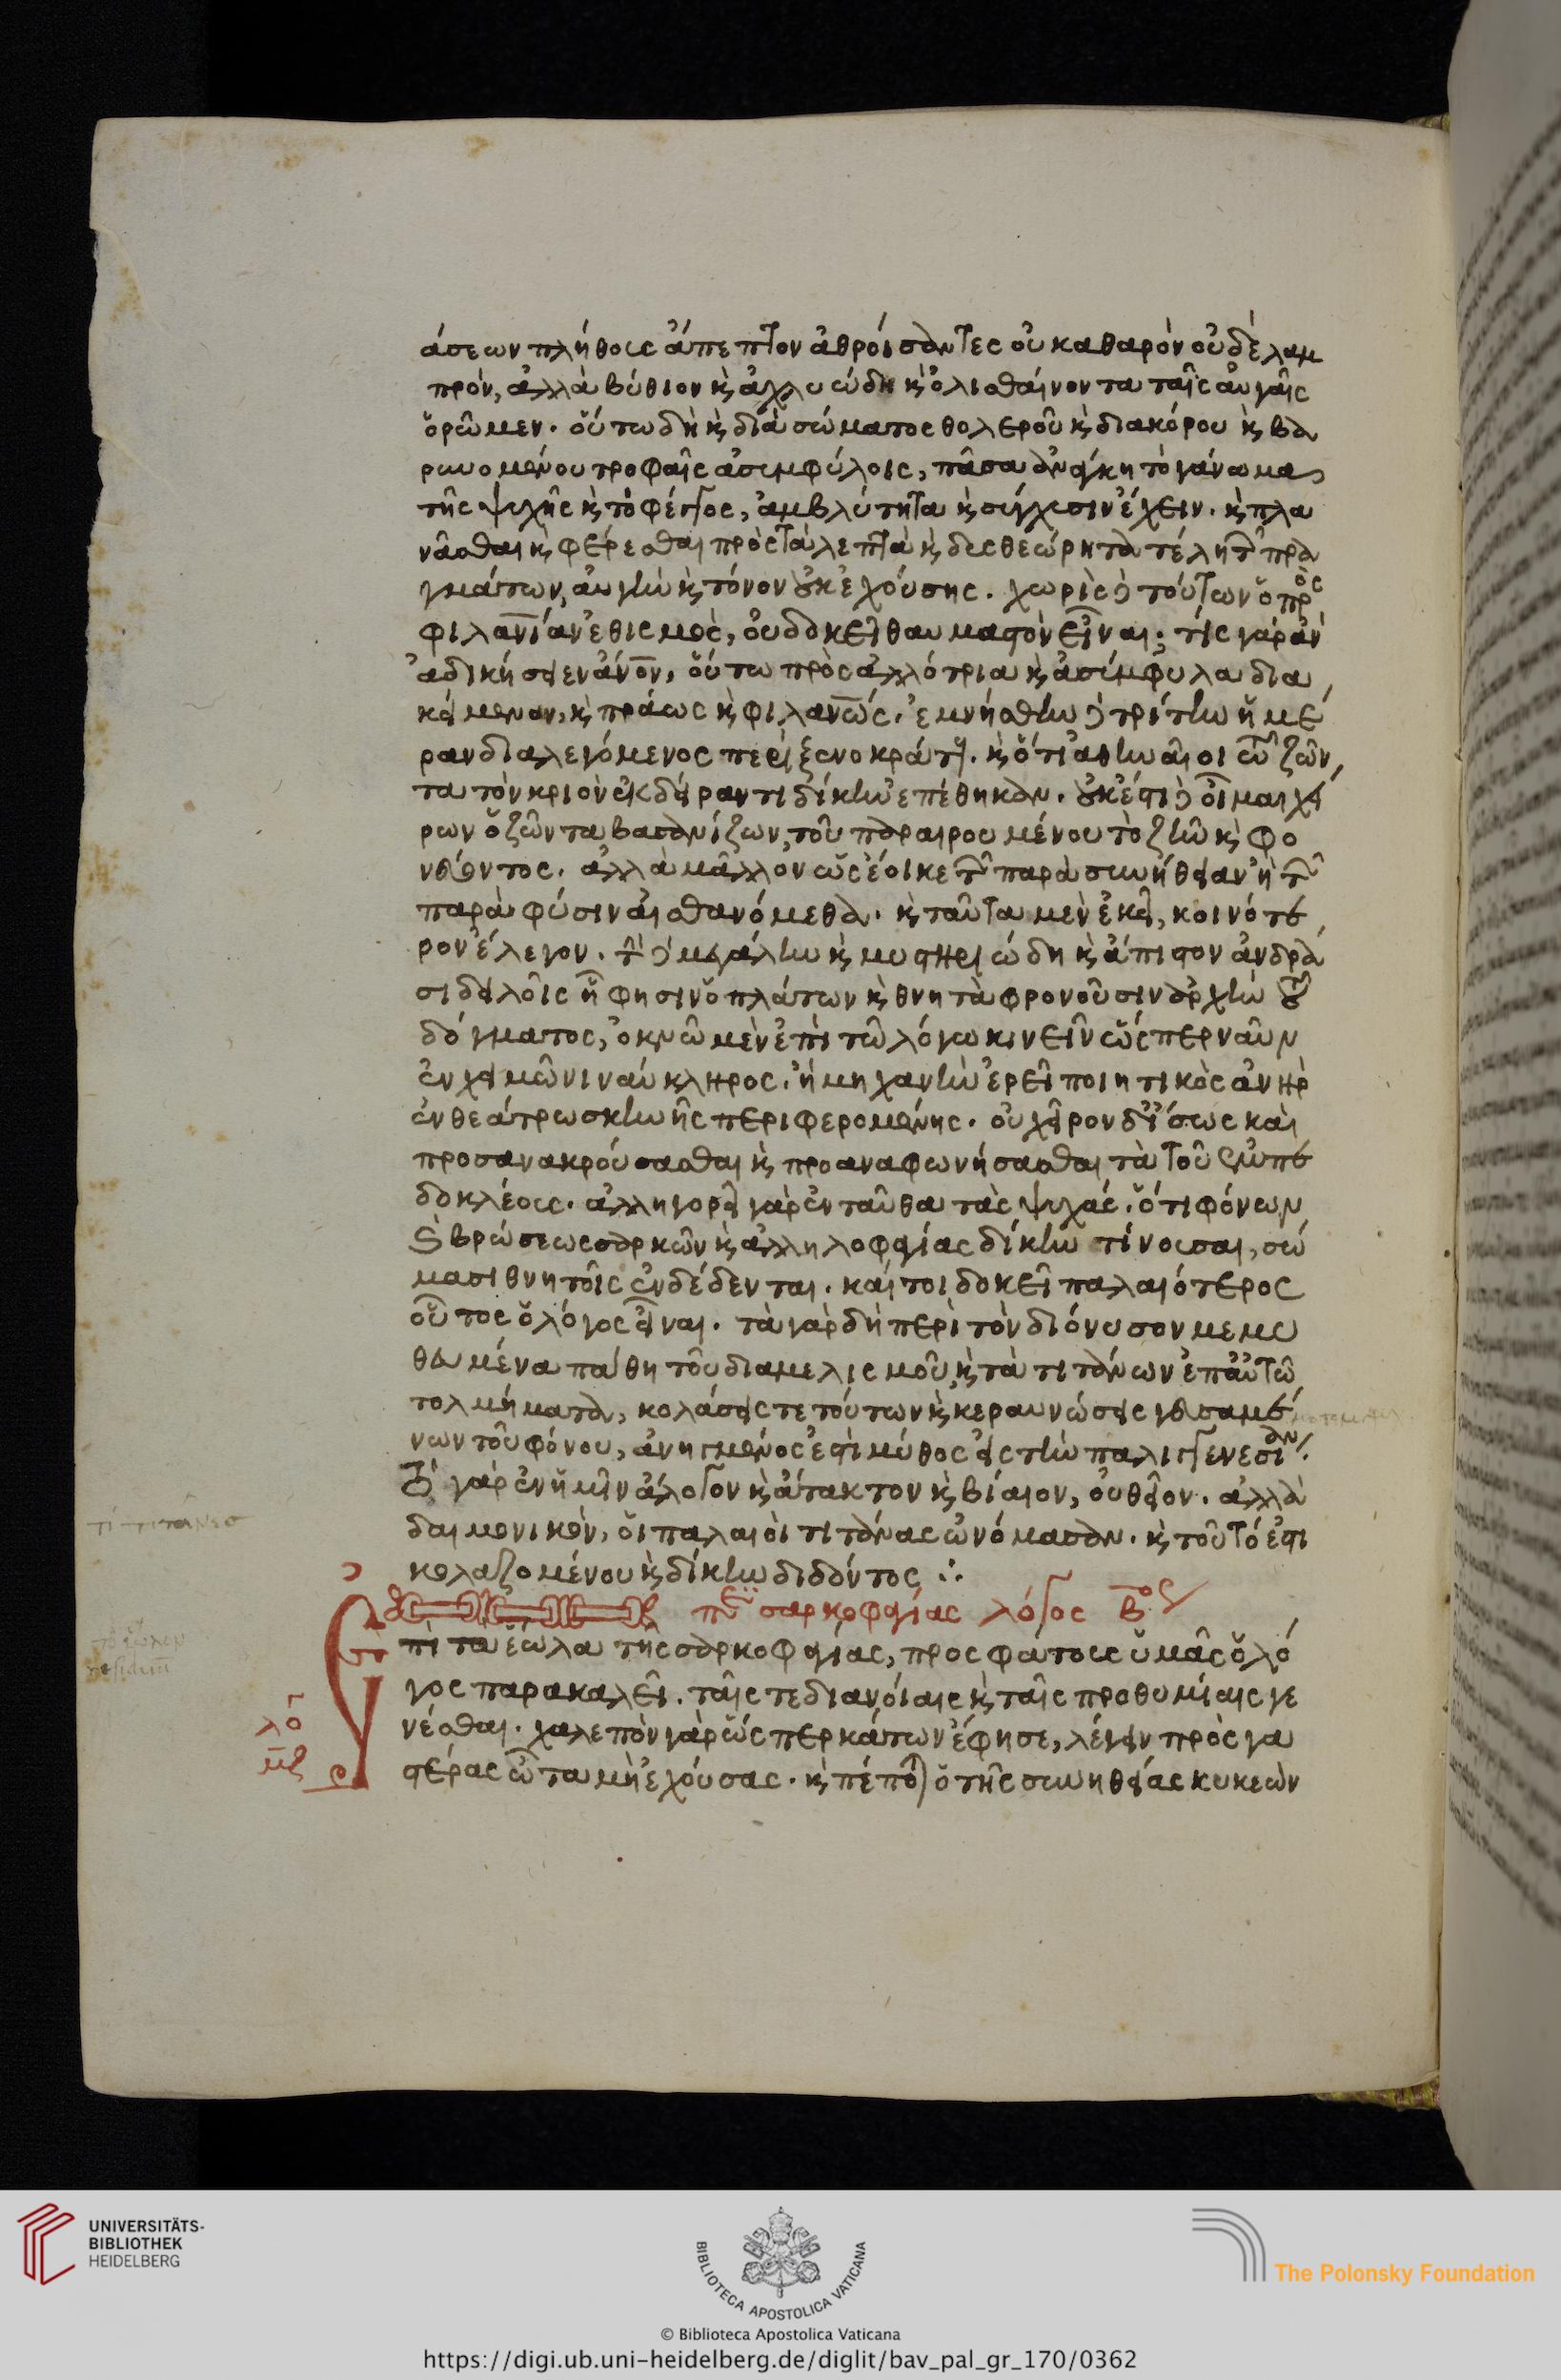 άσεων πλήθους ἄπεπτον ἀθροίσαντες οὐ καθαρὸν οὐδὲ λαμ
πρόν, ἀλλὰ βύθιον κ ἀχλυώδη κ ὀλισθαίνοντα ταῖς αὐγαῖς
ὁρῶμεν. οὕτω δὴ κ διὰ σώματος θολεροῦ κ διακόρου κ βα
ρυνομένου τροφαῖς ἀσυμφύλοις, πᾶσα ἀνάγκη τὸ γάνωμα
τῆς ψυχῆς κ τὸ φέγγος, ἀμβλύτητα κ σύγχυσιν ἔχειν. κ πλα
νᾶσθαι κ φέρεσθαι πρὸς τὰ λεπτὰ κ δυσθεώρητα τέλη τῶν πρα
γμάτων, αὐγὴν κ τόνον οὐκ ἐχούσης. χωρὶς δὲ τούτων ὁ πρὸς
φιλανίαν ἐθισμὸς, οὐ δοκεῖ θαυμαστὸν εἶναι; τίς γὰρ ἂν
ἀδικήσειεν ἄνον, οὕτω πρὸς ἀλλότρια κ ἀσύμφυλα δια
κείμενον, κ πράως κ φιλανως. ἐμνήσθην δὲ τρίτην ἡμέ
ραν διαλεγόμενος περὶ ξενοκράτους. κ ὅτι ἀθηναῖοι τῶ ζῶν
τα τὸν κριὸν ἐκδείραντι δίκην ἐπέθηκαν. οὐκ ἔστι δὲ οἶμαι χεί
ρων ὁ ζῶντα βασανίζων, τοῦ παραιρουμένου τὸ ζῆν κ φο
νεύοντος. ἀλλὰ μᾶλλον ὡς ἔοικε τῶν παρὰ συνήθειαν ἢ τῶν
παρὰ φύσιν αἰσθανόμεθα. κ ταῦτα μὲν ἐκεῖ, κοινότε
ρον ἔλεγον. τὴν δὲ μεγάλην κ μυστηριώδη κ ἄπιστον ἀνδρά
σι δειλοῖς ᾗ φησιν ὁ πλάτων κ θνητὰ φρονοῦσιν ἀρχὴν τοῦ
δόγματος, ὀκνῶ μὲν ἐπὶ τῶ λόγω κινεῖν ὥσπερ ναῦν
ἐν χειμῶνι ναύκληρος. ἢ μηχανὴν ἐρεῖ ποιητικὸς ἀνὴρ
ἐν θεάτρω σκηνῆς περιφερομένης. οὐ χεῖρον δ' ἴσως καὶ
προσανακρούσασθαι κ προαναφωνήσασθαι τὰ τοῦ ἐμπε
δοκλέους. ἀλληγορεῖ γὰρ ἐνταῦθα τὰς ψυχάς. ὅτι φόνων
κ βρώσεως σαρκῶν κ ἀλληλοφαγίας δίκην τίνουσαι, σώ
μασι θνητοῖς ἐνδέδενται. καίτοι δοκεῖ παλαιότερος
οὗτος ὁ λόγος εἶναι. τὰ γὰρ δὴ περὶ τὸν διόνυσον μεμυ
θευμένα πάθη τοῦ διαμελισμοῦ, κ τὰ τιτάνων ἐπ' αὐτῶ
τολμήματα, κολάσεις τε τούτων κ κεραυνώσεις γευσαμέ
νων τοῦ φόνου, ἀνηγμένος ἐστὶ μύθος εἰς τὴν παλιγγενεσίαν.
τὸ γὰρ ἐν ἡμῖν ἄλογον κ ἄτακτον κ βίαιον, οὐ θεῖον. ἀλλὰ
δαιμονικὸν, οἱ παλαιοὶ τιτάνας ὠνόμασαν. κ τοῦτό ἐστι
κολαζομένου κ δίκην διδόντος ∴
περὶ σαρκοφαγίας λόγος βος
Ἐπὶ τὰ ἕωλα τῆς σαρκοφαγίας, προσφάτους ὑμᾶς ὁ λό
γος παρακαλεῖ. ταῖς τε διανοίαις κ ταῖς προθυμίαις γε
νέσθαι. χαλεπὸν γὰρ ὥσπερ κάτων ἔφησε, λέγειν πρὸς γα
στέρας ὦτα μὴ ἐχούσας. κ πέποται ὁ τῆς συνηθείας κυκεὼν
λογ
μβ
UNIVERSITÄTS-
BIBLIOTHEK
HEIDELBERG
BIBLIOTECA APOSTOLICA VATICANA
The Polonsky Foundation
© Biblioteca Apostolica Vaticana
https://digi.ub.uni-heidelberg.de/diglit/bav_pal_gr_170/0362